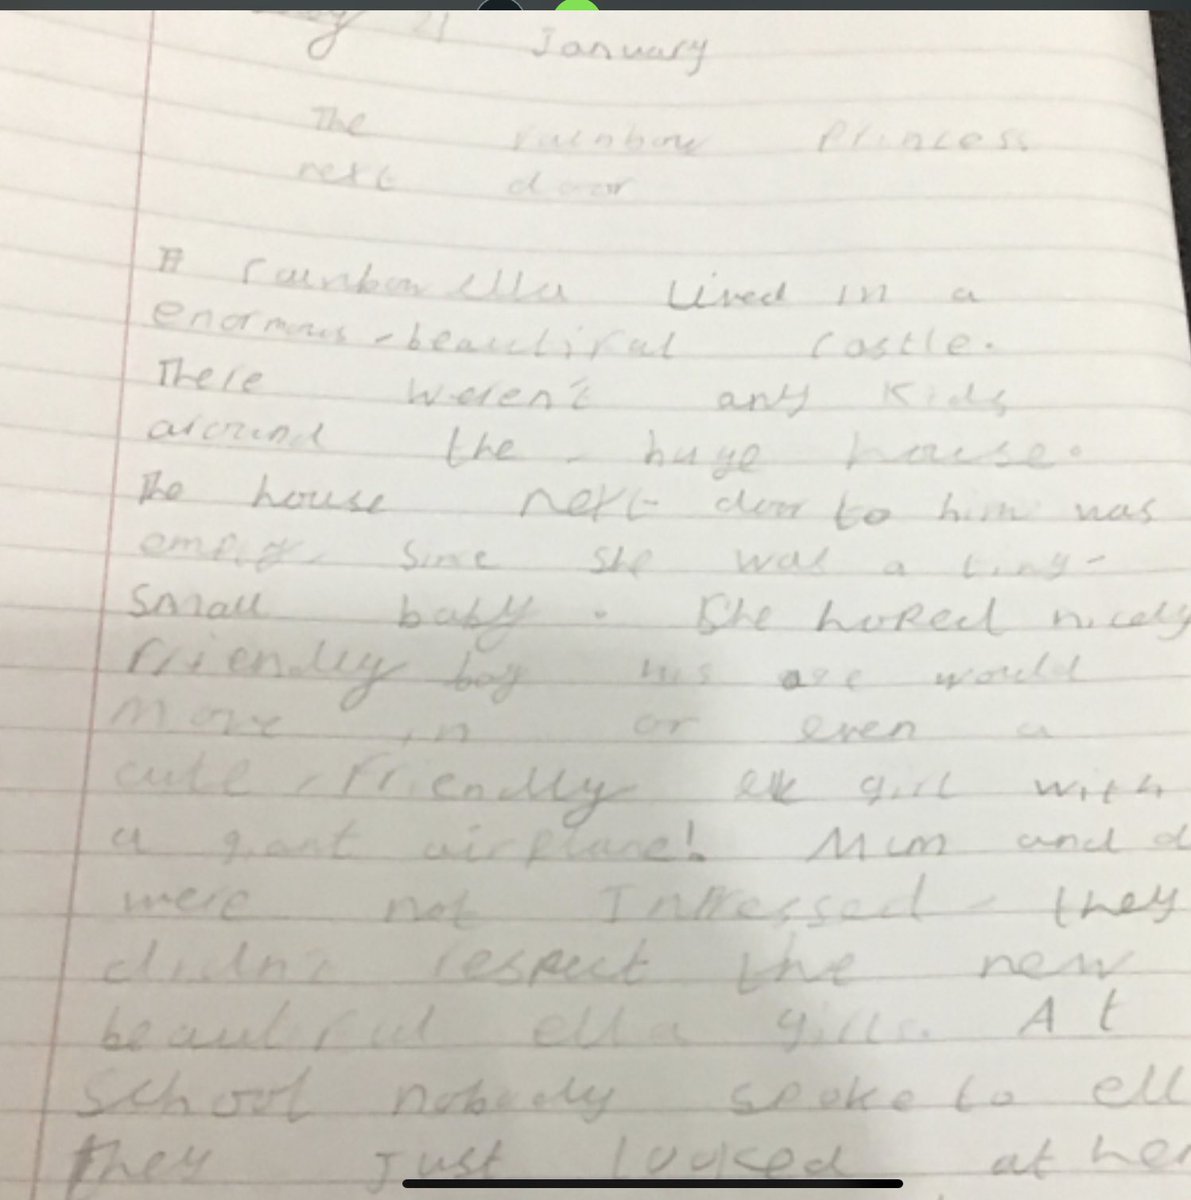 21 January
The rainbow Princess
next door
A rainbow ella lived in a
enormous-beautiful castle.
There weren't any Kids
around the - huge house.
The house next door to him was
empty. Since she was a tiny-
small baby. She hoped nicely
friendly boy his age would
Move in or even a
cute, friendly girl with
a giant airplane! Mum and
were not Impressed - they
didn't respect the new
beautiful ella girls. At
School nobody spoke to ell
they just looked at her